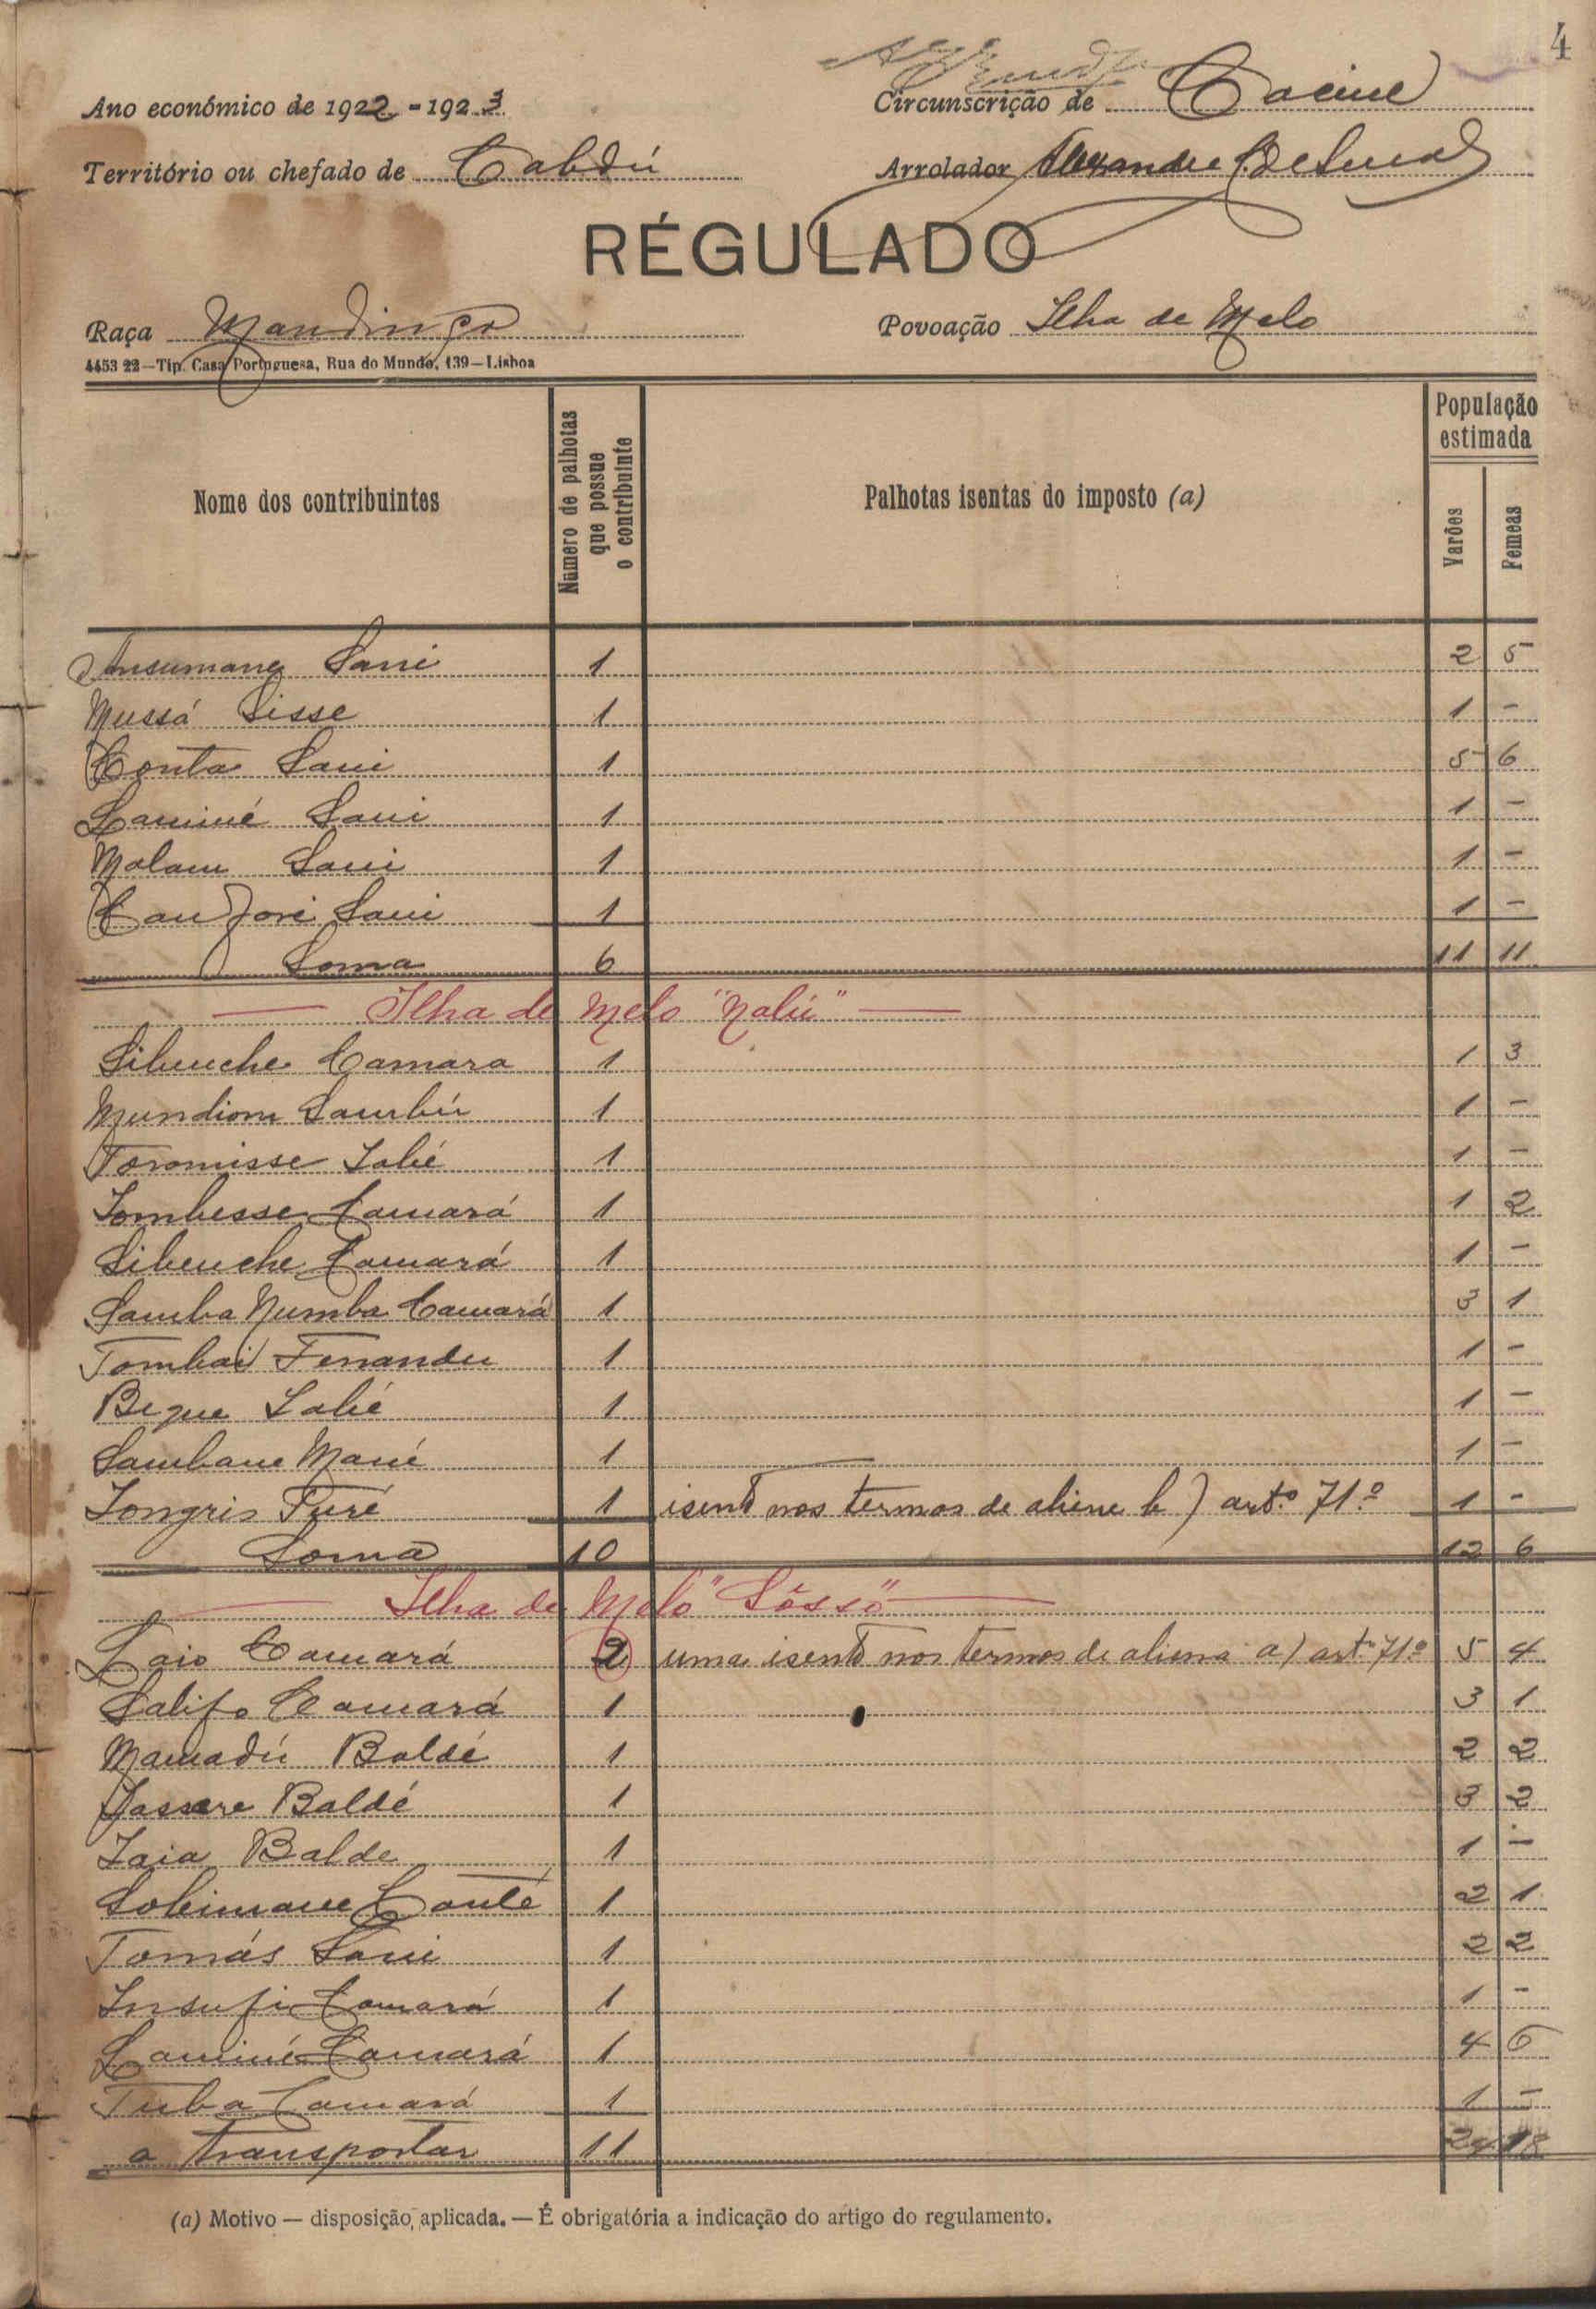 4
Ano económico de 1922-1923 Circunscrição de Cacine
Território ou chefado de Cabdú Arrolador Alexandre
RÉGULADO
Raça Mandinga Povoação Ilha de Melo
4453 22—Tip. Casa Portuguesa, Rua do Mundo, 139—Lisboa
Nome dos contribuintes Número de palhotas que possue o contribuinte Palhotas isentas do imposto (a) População estimada Varões Femeas
Ansumane Sani 1 2 5
Mussá Sisse 1 1 -
Conta Sani 1 5 6
Laminé Sani 1 1 -
Malam Sani 1 1 -
Canjoré Sani 1 1 -
Soma 6 11 11
— Ilha de Melo "Nalú" —
Sibenche Camara 1 1 3
Mundiom Sambú 1 1 -
Toromisse Salié 1 1 -
Tombesse Camará 1 1 2
Sibenche Camará 1 1 -
Samba Numba Camará 1 3 1
Tombai Fernandu 1 1 -
Beque Salié 1 1 -
Sambane Mané 1 1 -
Tongris Turé 1 isento nos termos de aliene b) artº 71º 1 -
Soma 10 12 6
— Ilha de Melo "Sôssó" —
Laio Camará 2 uma isento nos termos de aliena a) artº 71º 5 4
Salifo Camará 1 3 1
Mamadú Baldé 1 2 2
Jassere Baldé 1 3 2
Iaia Balde 1 1 -
Soleimane Conté 1 2 1
Tomás Sani 1 2 2
Insufi Camará 1 1 -
Laminé Camará 1 4 6
Tuba Camará 1 1 -
a transportar 11 24 18
(a) Motivo — disposição, aplicada. — É obrigatória a indicação do artigo do regulamento.